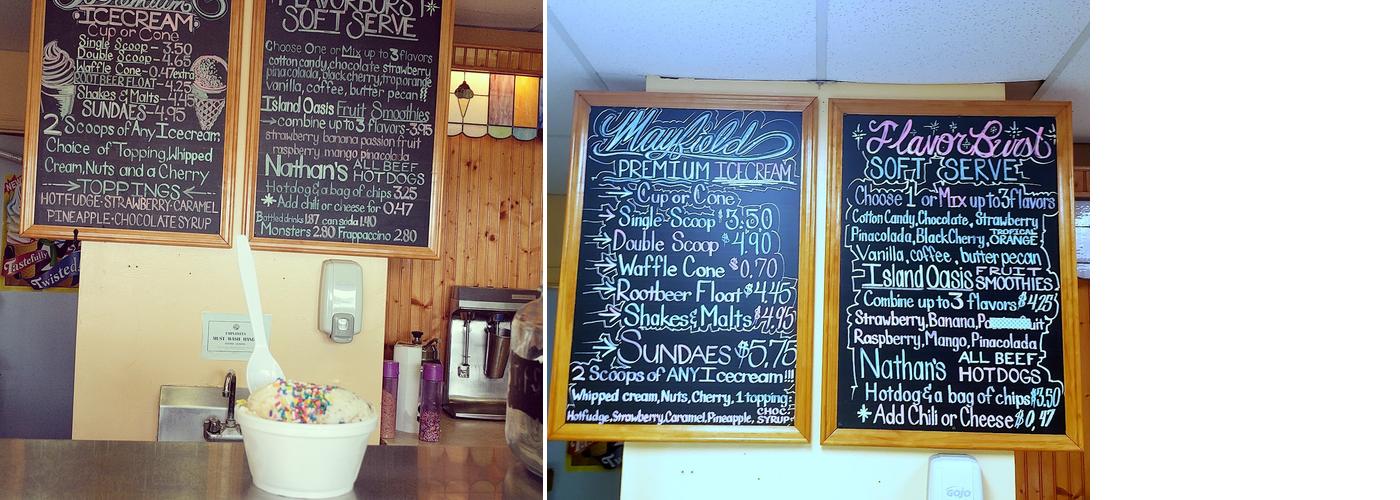 Premium
ICECREAM
Cup or Cone
Single Scoop - 3.50
Double Scoop - 4.65
Waffle Cone - 0.47extra
ROOT BEER FLOAT - 4.25
Shakes & Malts - 4.45
SUNDAES - 4.95
2 Scoops of Any Icecream
Choice of Topping, Whipped
Cream, Nuts and a Cherry
TOPPINGS
HOTFUDGE·STRAWBERRY·CARAMEL
PINEAPPLE·CHOCOLATE SYRUP
FLAVORBURST
SOFT SERVE
Choose One or Mix up to 3 flavors
cotton candy, chocolate strawberry
pinacolada, black cherry, trop.orange
vanilla, coffee, butter pecan
Island Oasis Fruit Smoothies
combine up to 3 flavors - 3.95
strawberry banana passion fruit
raspberry mango pinacolada
Nathan's ALL BEEF
HOTDOGS
Hotdog & a bag of chips 3.25
*Add chili or cheese for 0.47
Bottled drinks 1.87 can soda 1.40
Monsters 2.80 Frappaccino 2.80
Tastefully
Twisted
EMPLOYEES
MUST WASH HANDS
Mayfield
PREMIUM ICECREAM
Cup or Cone
Single Scoop $3.50
Double Scoop $4.90
Waffle Cone $0.70
Rootbeer Float $4.45
Shakes & Malts $4.95
SUNDAES $5.75
2 Scoops of ANY Icecream!!!
Whipped cream, Nuts, Cherry, 1 topping
Hotfudge, Strawberry, Caramel, Pineapple, CHOC.
SYRUP
Flavor Burst
SOFT SERVE
Choose 1 or Mix up to 3 flavors
Cotton Candy, Chocolate, Strawberry
Pinacolada, Black Cherry, TROPICAL
ORANGE
Vanilla, coffee, butter pecan
Island Oasis FRUIT
SMOOTHIES
Combine up to 3 flavors $4.25
Strawberry, Banana, Pa uit
Raspberry, Mango, Pinacolada
Nathan's ALL BEEF
HOTDOGS
Hotdog & a bag of chips $3.50
*Add Chili or Cheese $0.47
GOJO